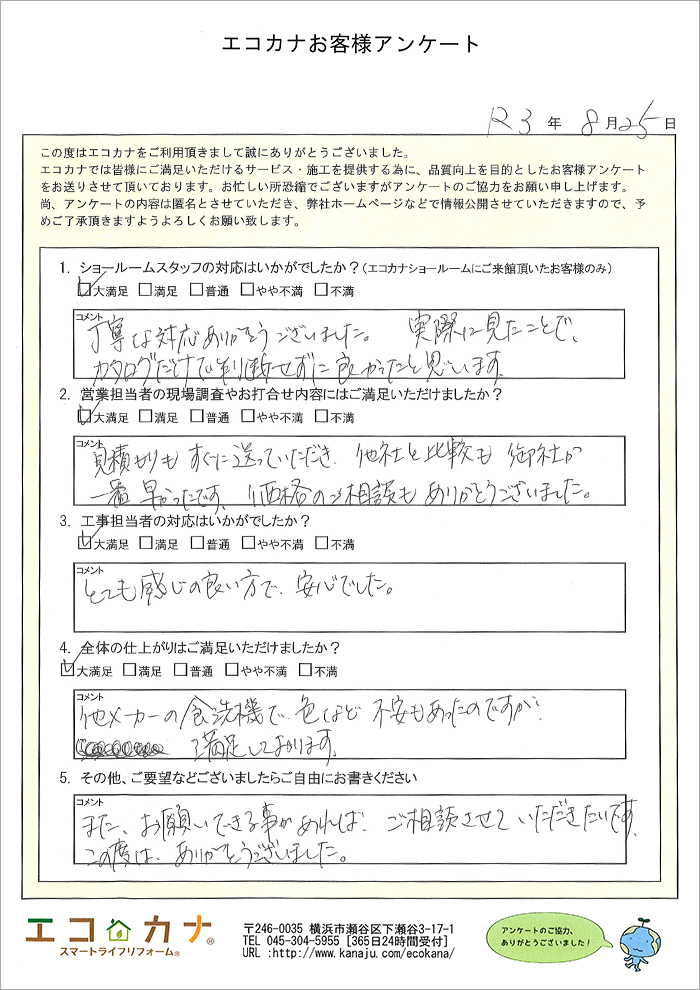 エコカナお客様アンケート
R3 年 8 月 25 日
この度はエコカナをご利用頂きまして誠にありがとうございました。
エコカナでは皆様にご満足いただけるサービス・施工を提供する為に、品質向上を目的としたお客様アンケート
をお送りさせて頂いております。お忙しい所恐縮でございますがアンケートのご協力をお願い申し上げます。
尚、アンケートの内容は匿名とさせていただき、弊社ホームページなどで情報公開させていただきますので、予
めご了承頂きますようよろしくお願い致します。
1. ショールームスタッフの対応はいかがでしたか？(エコカナショールームにご来館頂いたお客様のみ)
☑大満足 □満足 □普通 □やや不満 □不満
コメント
丁寧な対応ありがとうございました。 実際に見たことで、
カタログだけで判断せずに良かったと思います。
2. 営業担当者の現場調査やお打合せ内容にはご満足いただけましたか？
☑大満足 □満足 □普通 □やや不満 □不満
コメント
見積もりもすぐに送っていただき、他社と比較も御社が
一番早かったです。価格のご相談もありがとうございました。
3. 工事担当者の対応はいかがでしたか？
☑大満足 □満足 □普通 □やや不満 □不満
コメント
とても感じの良い方で、安心でした。
4. 全体の仕上がりはご満足いただけましたか？
☑大満足 □満足 □普通 □やや不満 □不満
コメント
他メーカーの食洗機で、色など不安もあったのですが、
満足しております。
5. その他、ご要望などございましたらご自由にお書きください
コメント
また、お願いできる事があれば、ご相談させていただきたいです。
この度は、ありがとうございました。
エコカナ®
スマートライフリフォーム®
〒246-0035 横浜市瀬谷区下瀬谷3-17-1
TEL 045-304-5955 [365日24時間受付]
URL :http://www.kanaju.com/ecokana/
アンケートのご協力、
ありがとうございました！